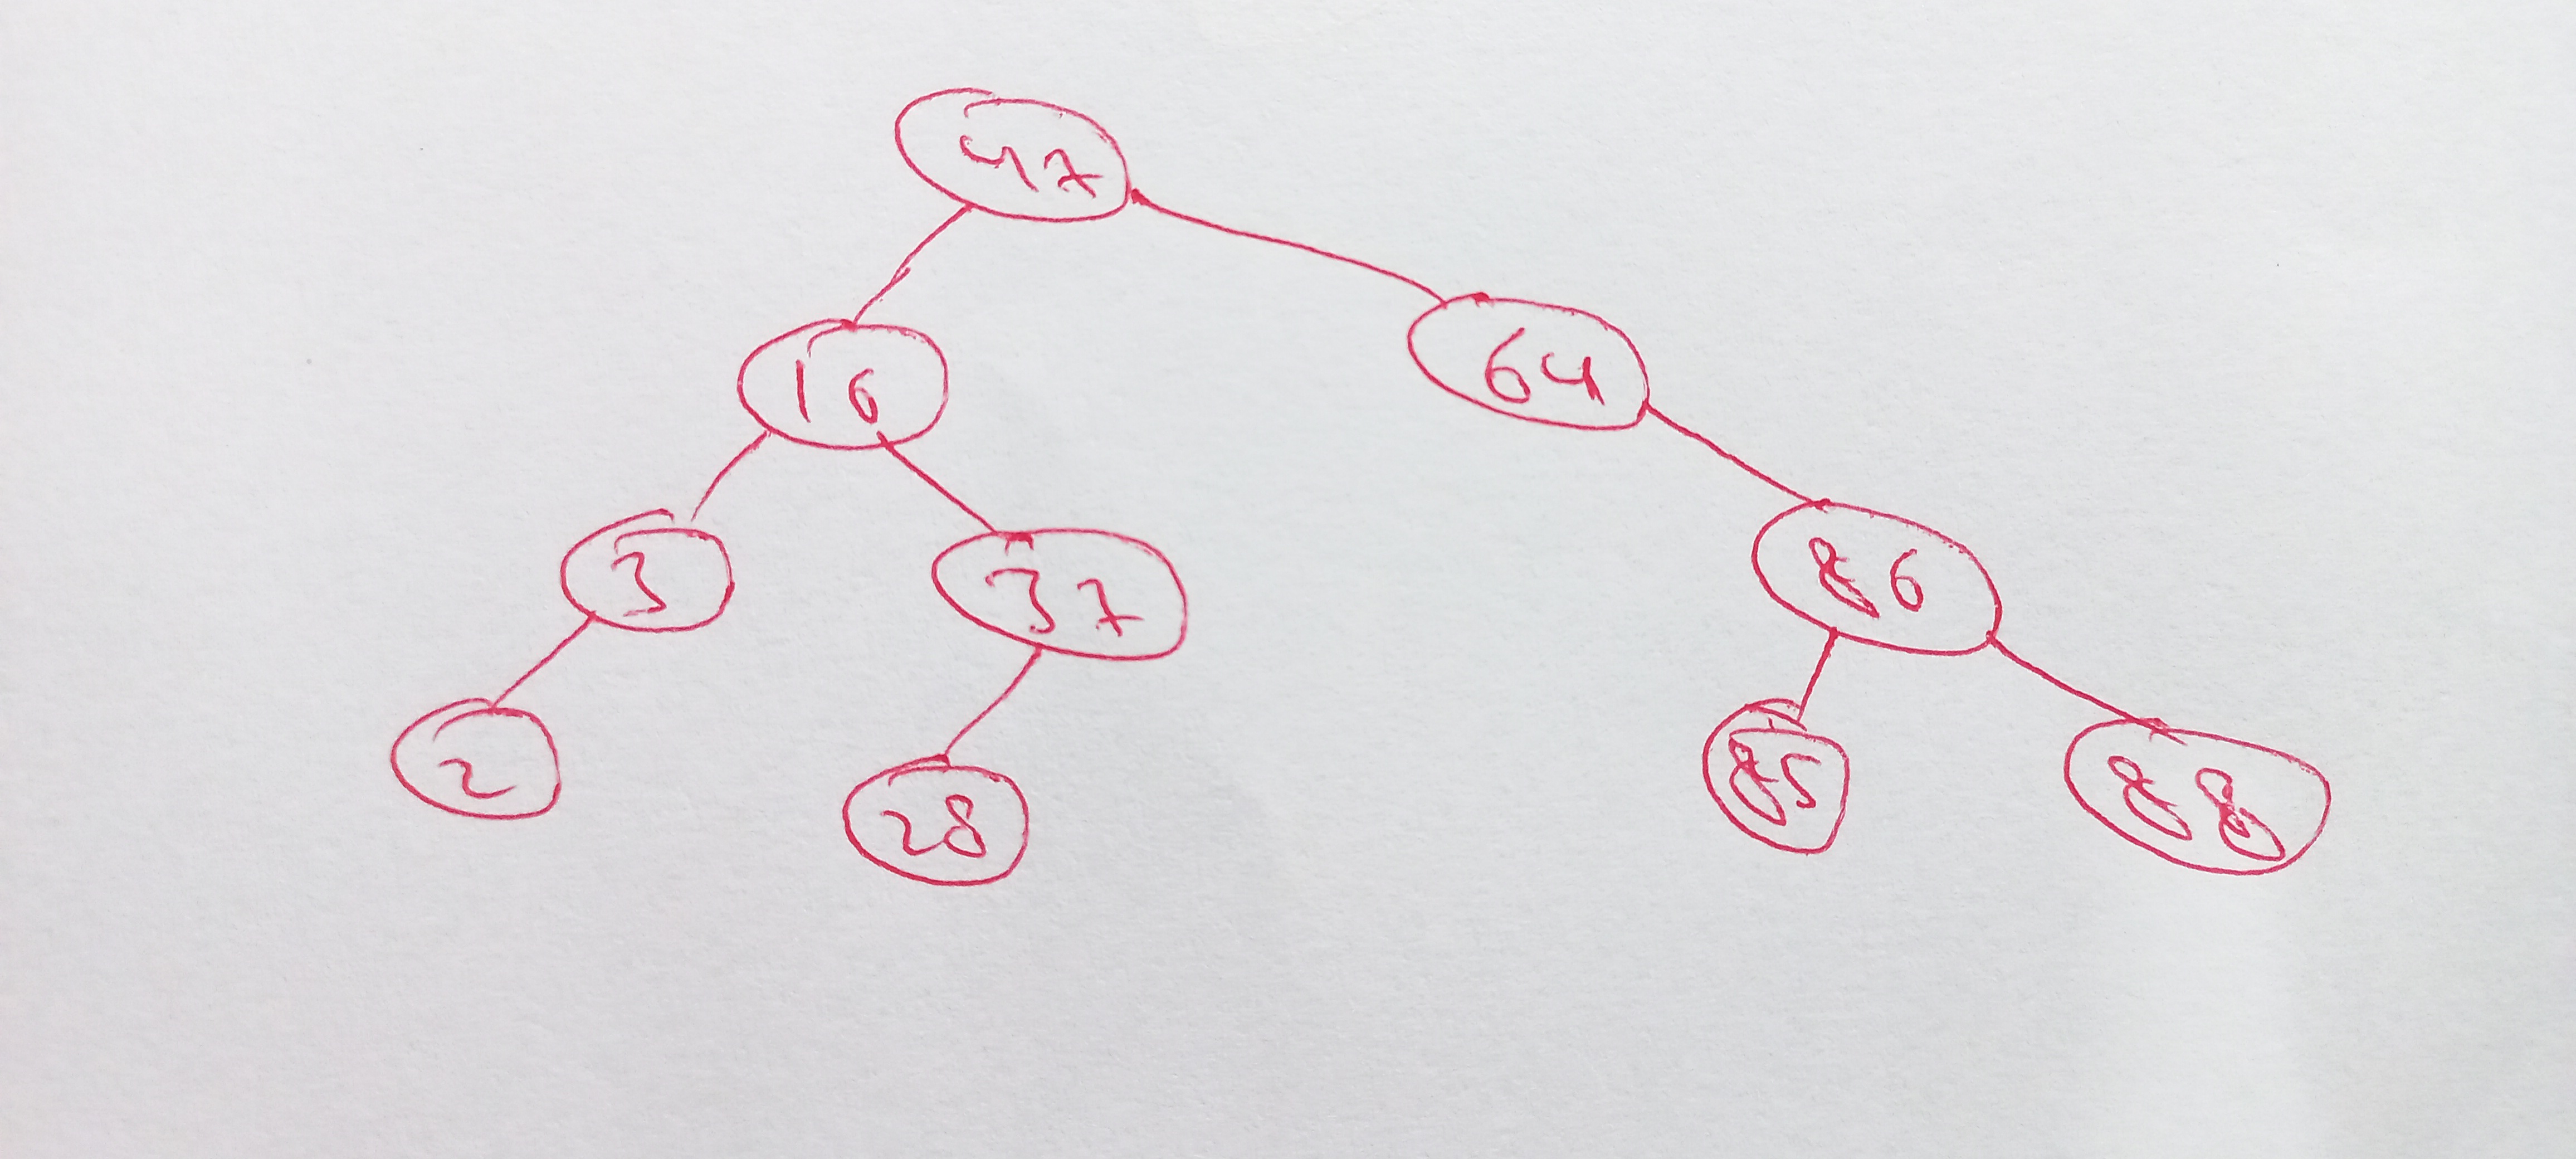 47
16 64
3 37 86
2 28 85 88